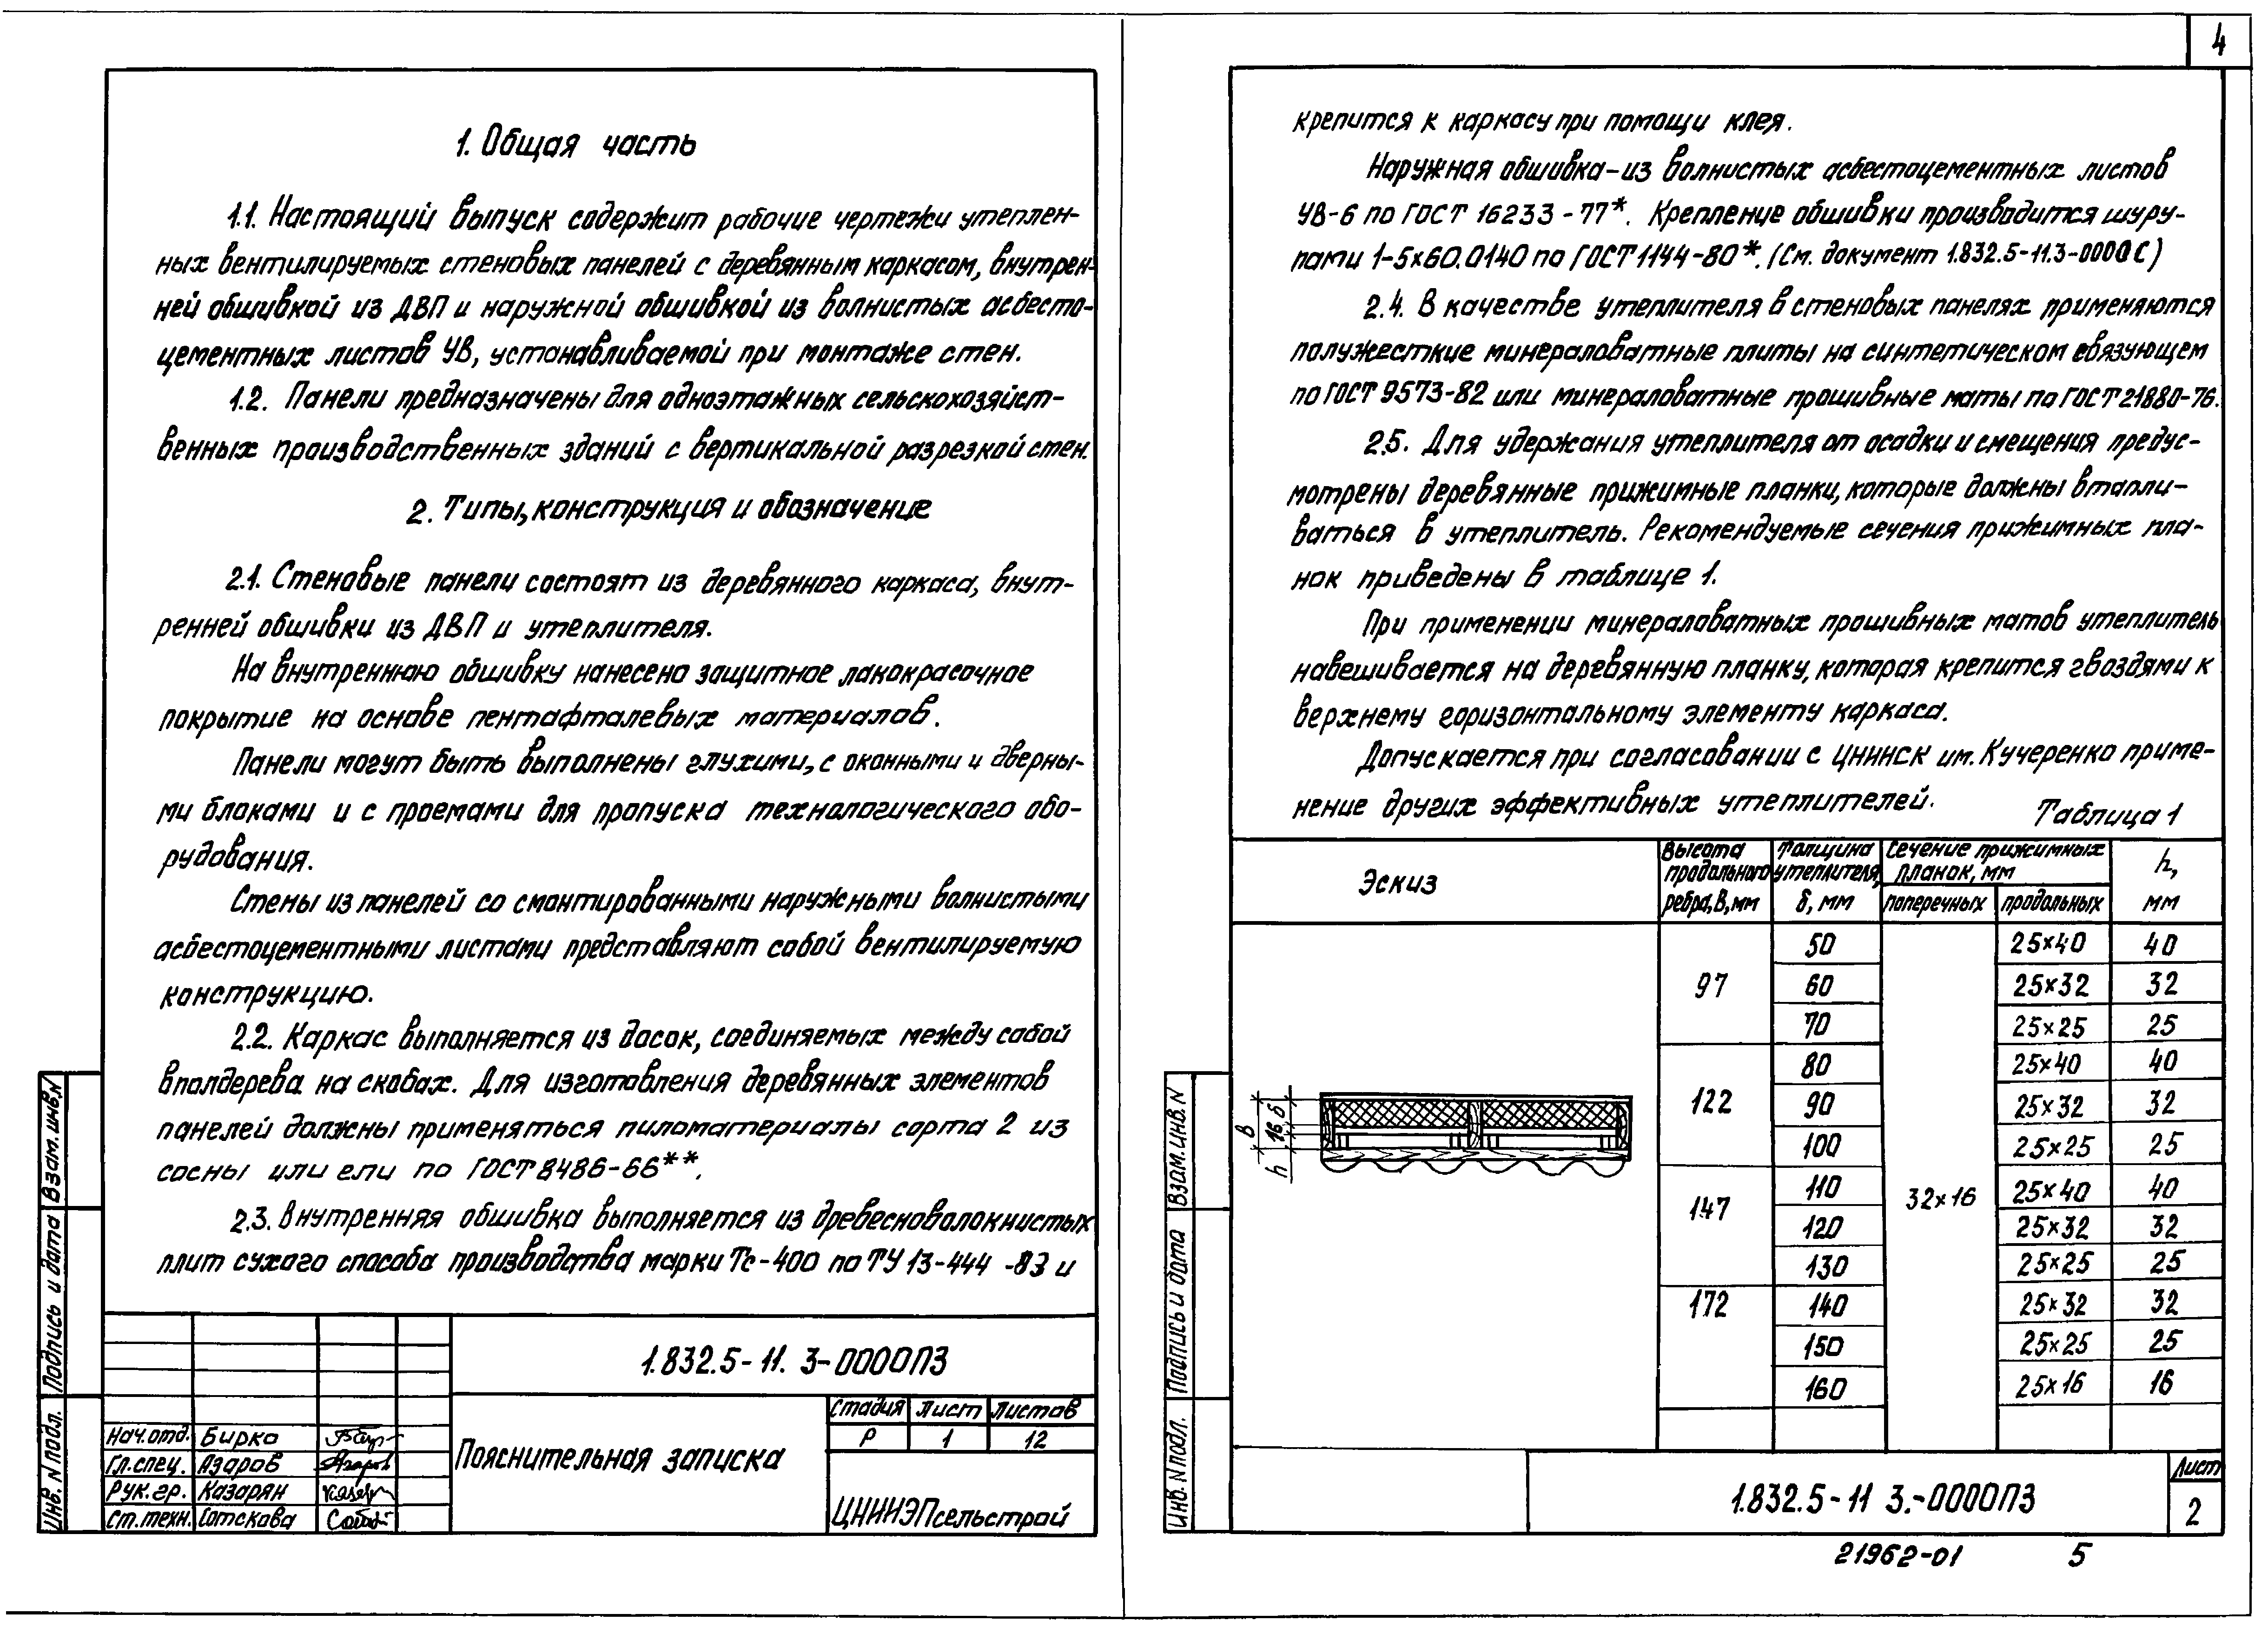 4
1. Общая часть
1.1. Настоящий выпуск содержит рабочие чертежи утеплен-
ных вентилируемых стеновых панелей с деревянным каркасом, внутрен-
ней обшивкой из ДВП и наружной обшивкой из волнистых асбесто-
цементных листов УВ, устанавливаемой при монтаже стен.
1.2. Панели предназначены для одноэтажных сельскохозяйст-
венных производственных зданий с вертикальной разрезкой стен.
2. Типы, конструкция и обозначение
2.1. Стеновые панели состоят из деревянного каркаса, внут-
ренней обшивки из ДВП и утеплителя.
На внутреннюю обшивку нанесено защитное лакокрасочное
покрытие на основе пентафталевых материалов.
Панели могут быть выполнены глухими, с оконными и дверны-
ми блоками и с проемами для пропуска технологического обо-
рудования.
Стены из панелей со смонтированными наружными волнистыми
асбестоцементными листами представляют собой вентилируемую
конструкцию.
2.2. Каркас выполняется из досок, соединяемых между собой
вполдерева на скобах. Для изготовления деревянных элементов
панелей должны применяться пиломатериалы сорта 2 из
сосны или ели по ГОСТ 8486-66**.
2.3. Внутренняя обшивка выполняется из древесноволокнистых
плит сухого способа производства марки Тс-400 по ТУ 13-444 -83 и
Взам. инв. N
Подпись и дата
Инв. N подл.
1.832.5-11. 3-0000ПЗ
Нач. отд. Бирко
Гл. спец. Азаров
Рук. гр. Казарян
Ст. техн. Сотскова
Пояснительная записка
Стадия Лист Листов
Р 1 12
ЦНИИЭПсельстрой
крепится к каркасу при помощи клея.
Наружная обшивка-из волнистых асбестоцементных листов
УВ-6 по ГОСТ 16233-77*. Крепление обшивки производится шуру-
пами 1-5х60.0140 по ГОСТ 1144-80*. (См. документ 1.832.5-11.3-0000С)
2.4. В качестве утеплителя в стеновых панелях применяются
полужесткие минераловатные плиты на синтетическом связующем
по ГОСТ 9573-82 или минераловатные прошивные маты по ГОСТ 21880-76.
2.5. Для удержания утеплителя от осадки и смещения предус-
мотрены деревянные прижимные планки, которые должны втапли-
ваться в утеплитель. Рекомендуемые сечения прижимных пла-
нок приведены в таблице 1.
При применении минераловатных прошивных матов утеплитель
навешивается на деревянную планку, которая крепится гвоздями к
верхнему горизонтальному элементу каркаса.
Допускается при согласовании с ЦНИИСК им. Кучеренко приме-
нение других эффективных утеплителей.
Таблица 1
Эскиз
Высота продольного ребра, В, мм
Толщина утеплителя, δ, мм
Сечение прижимных планок, мм
поперечных продольных
h, мм
97 50 25×40 40
60 25×32 32
70 25×25 25
122 80 25×40 40
90 25×32 32
100 25×25 25
147 110 32×16 25×40 40
120 25×32 32
130 25×25 25
172 140 25×32 32
150 25×25 25
160 25×16 16
В
h 16 δ
Взам. инв. N
Подпись и дата
Инв. N подл.
1.832.5-11 3.-0000ПЗ
Лист
2
21962-01 5